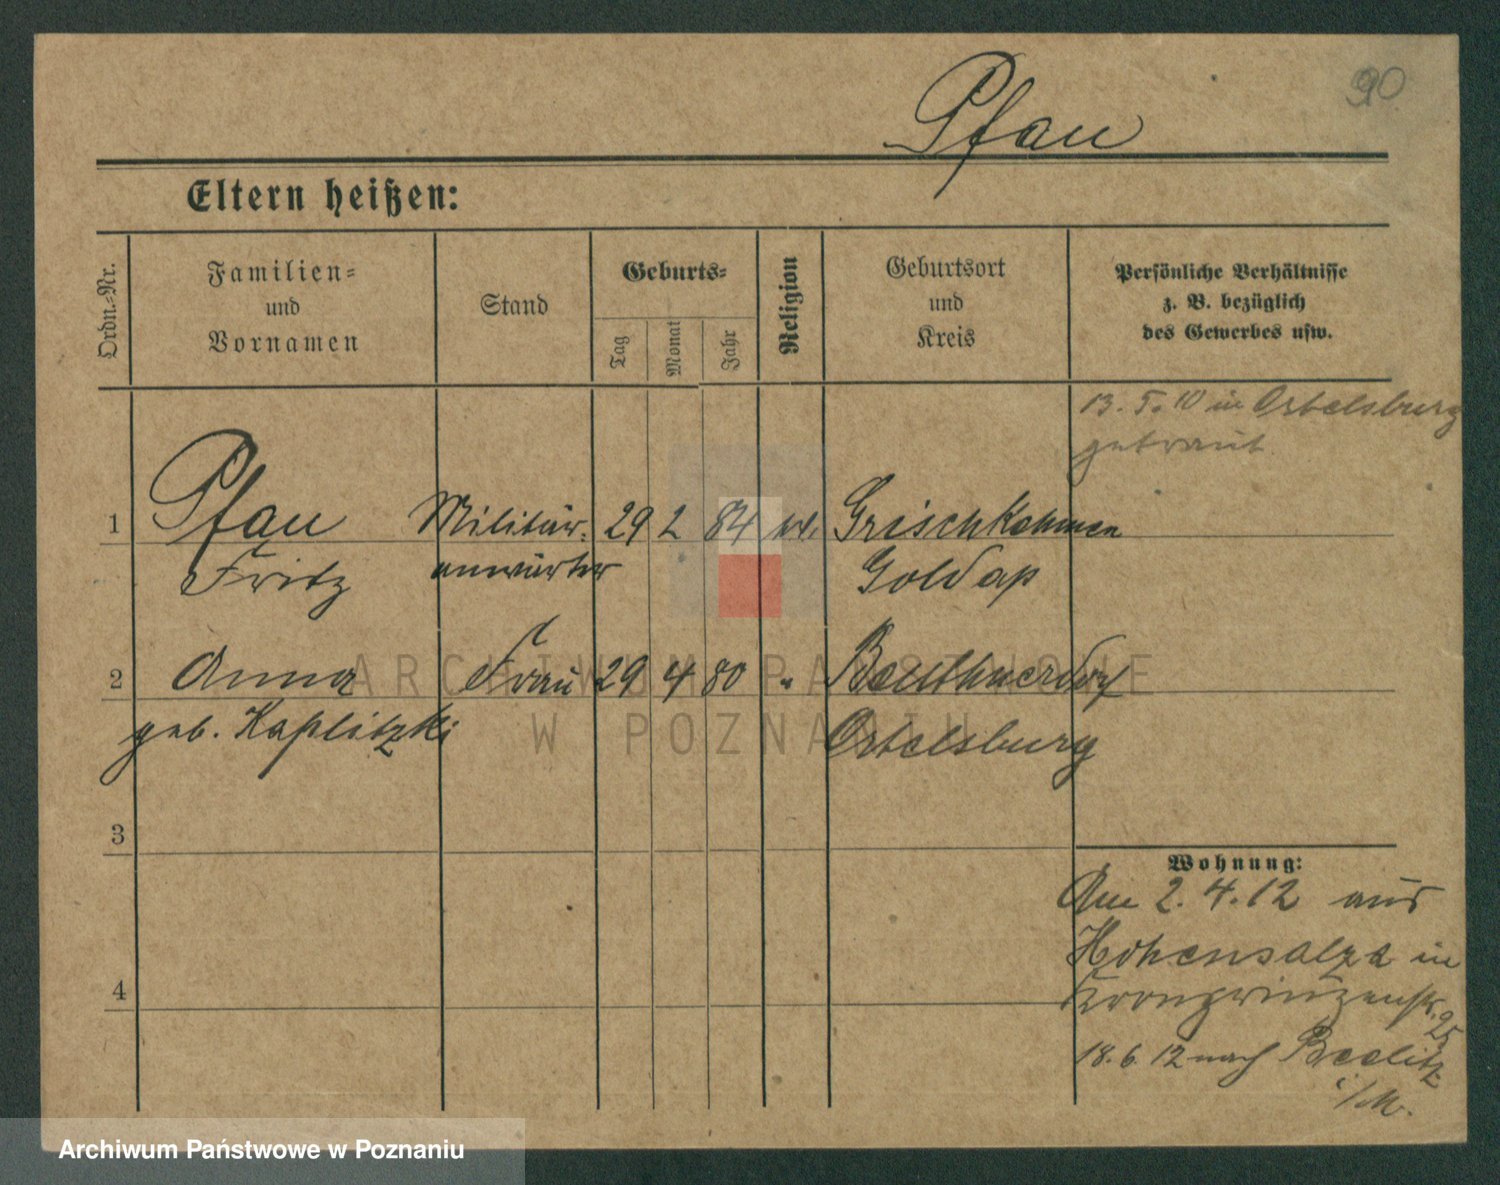 90
Pfau
Eltern heißen:
Ordn.-Nr.
Familien-
und
Vornamen
Stand
Geburts-
Tag
Monat
Jahr
Religion
Geburtsort
und
Kreis
Persönliche Verhältnisse
z. B. bezüglich
des Gewerbes usw.
13. 5. 10 in Ortelsburg
getraut
1 Pfau Militär- 29 2 84 ev. Grischkehmen
Fritz anwärter Goldap
2 Anna Frau 29 4 80 "
geb. Kaplitzki Ortelsburg
3
Wohnung:
Am 2. 4. 12 aus
Hohensalza in
4
Kronprinzenstr.
25
18. 6. 12 nach Beelitz
i/M.
ARCHIWUM PAŃSTWOWE
W POZNANIU
Archiwum Państwowe w Poznaniu